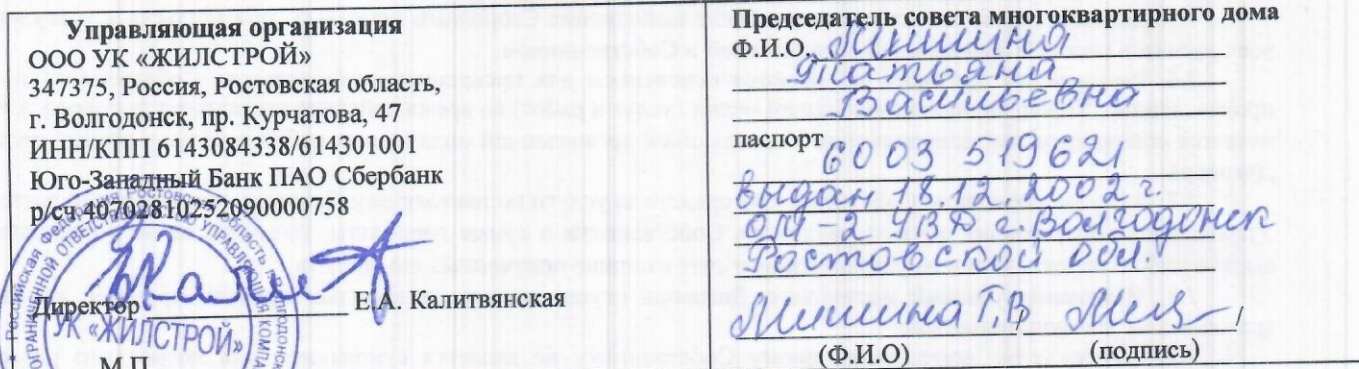 Управляющая организация
ООО УК «ЖИЛСТРОЙ»
347375, Россия, Ростовская область,
г. Волгодонск, пр. Курчатова, 47
ИНН/КПП 6143084338/614301001
Юго-Западный Банк ПАО Сбербанк
р/сч 40702810252090000758
Директор Е.А. Калитвянская
УК «ЖИЛСТРОЙ»
М.П.
Председатель совета многоквартирного дома
Ф.И.О. Мишина
Татьяна
Васильевна
паспорт 6003 519621
выдан 18.12.2002 г.
ОП-2 УВД г. Волгодонск
Ростовской обл.
Мишина ТВ /
(Ф.И.О) (подпись)